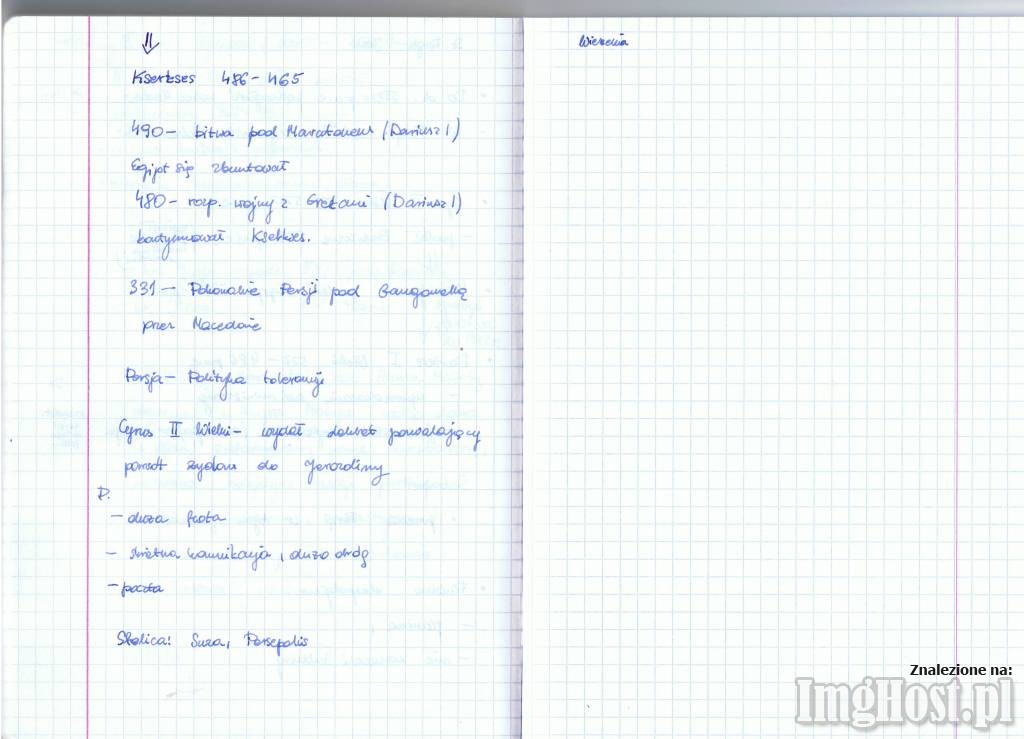 Kserkses 486-465
490- bitwa pod Maratonem (Dariusz I)
Egipt się zbuntował
480- rozp. wojny z Grekami (Dariusz I)
kontynuował Kserkses.
331- Pokonanie Persji pod Gaugamelą
przez Macedonię
Persja- Polityka tolerancji
Cyrus II Wielki- wydał dekret pozwalający
powrót żydom do Jerozolimy
P.
- duża flota
- świetna komunikacja, dużo dróg
- poczta
Stolica: Suza, Persepolis
Wierzenia
Znalezione na:
ImgHost.pl